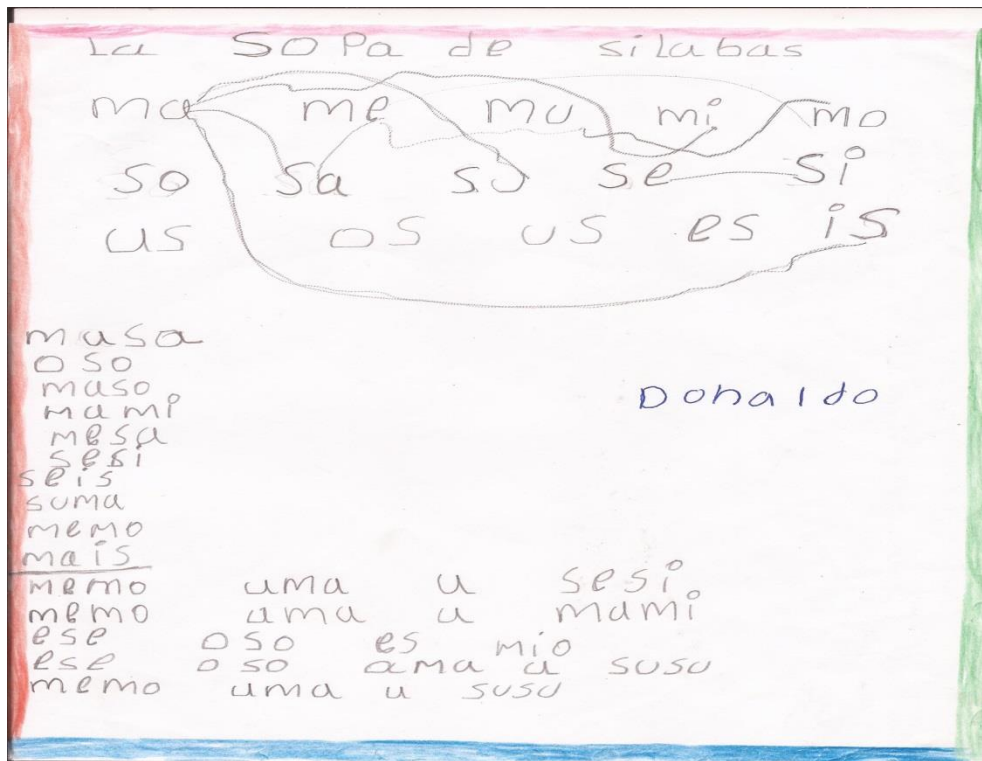 La SOPa de siLabas
ma me mu mi mo
so sa su se si
us os us es is
masa
oso
maso
mami
mesa
sesi
seis
suma
memo
mais
Donaldo
memo ama a sesi
memo ama a mami
ese oso es mio
ese oso ama a susu
memo ama a susu